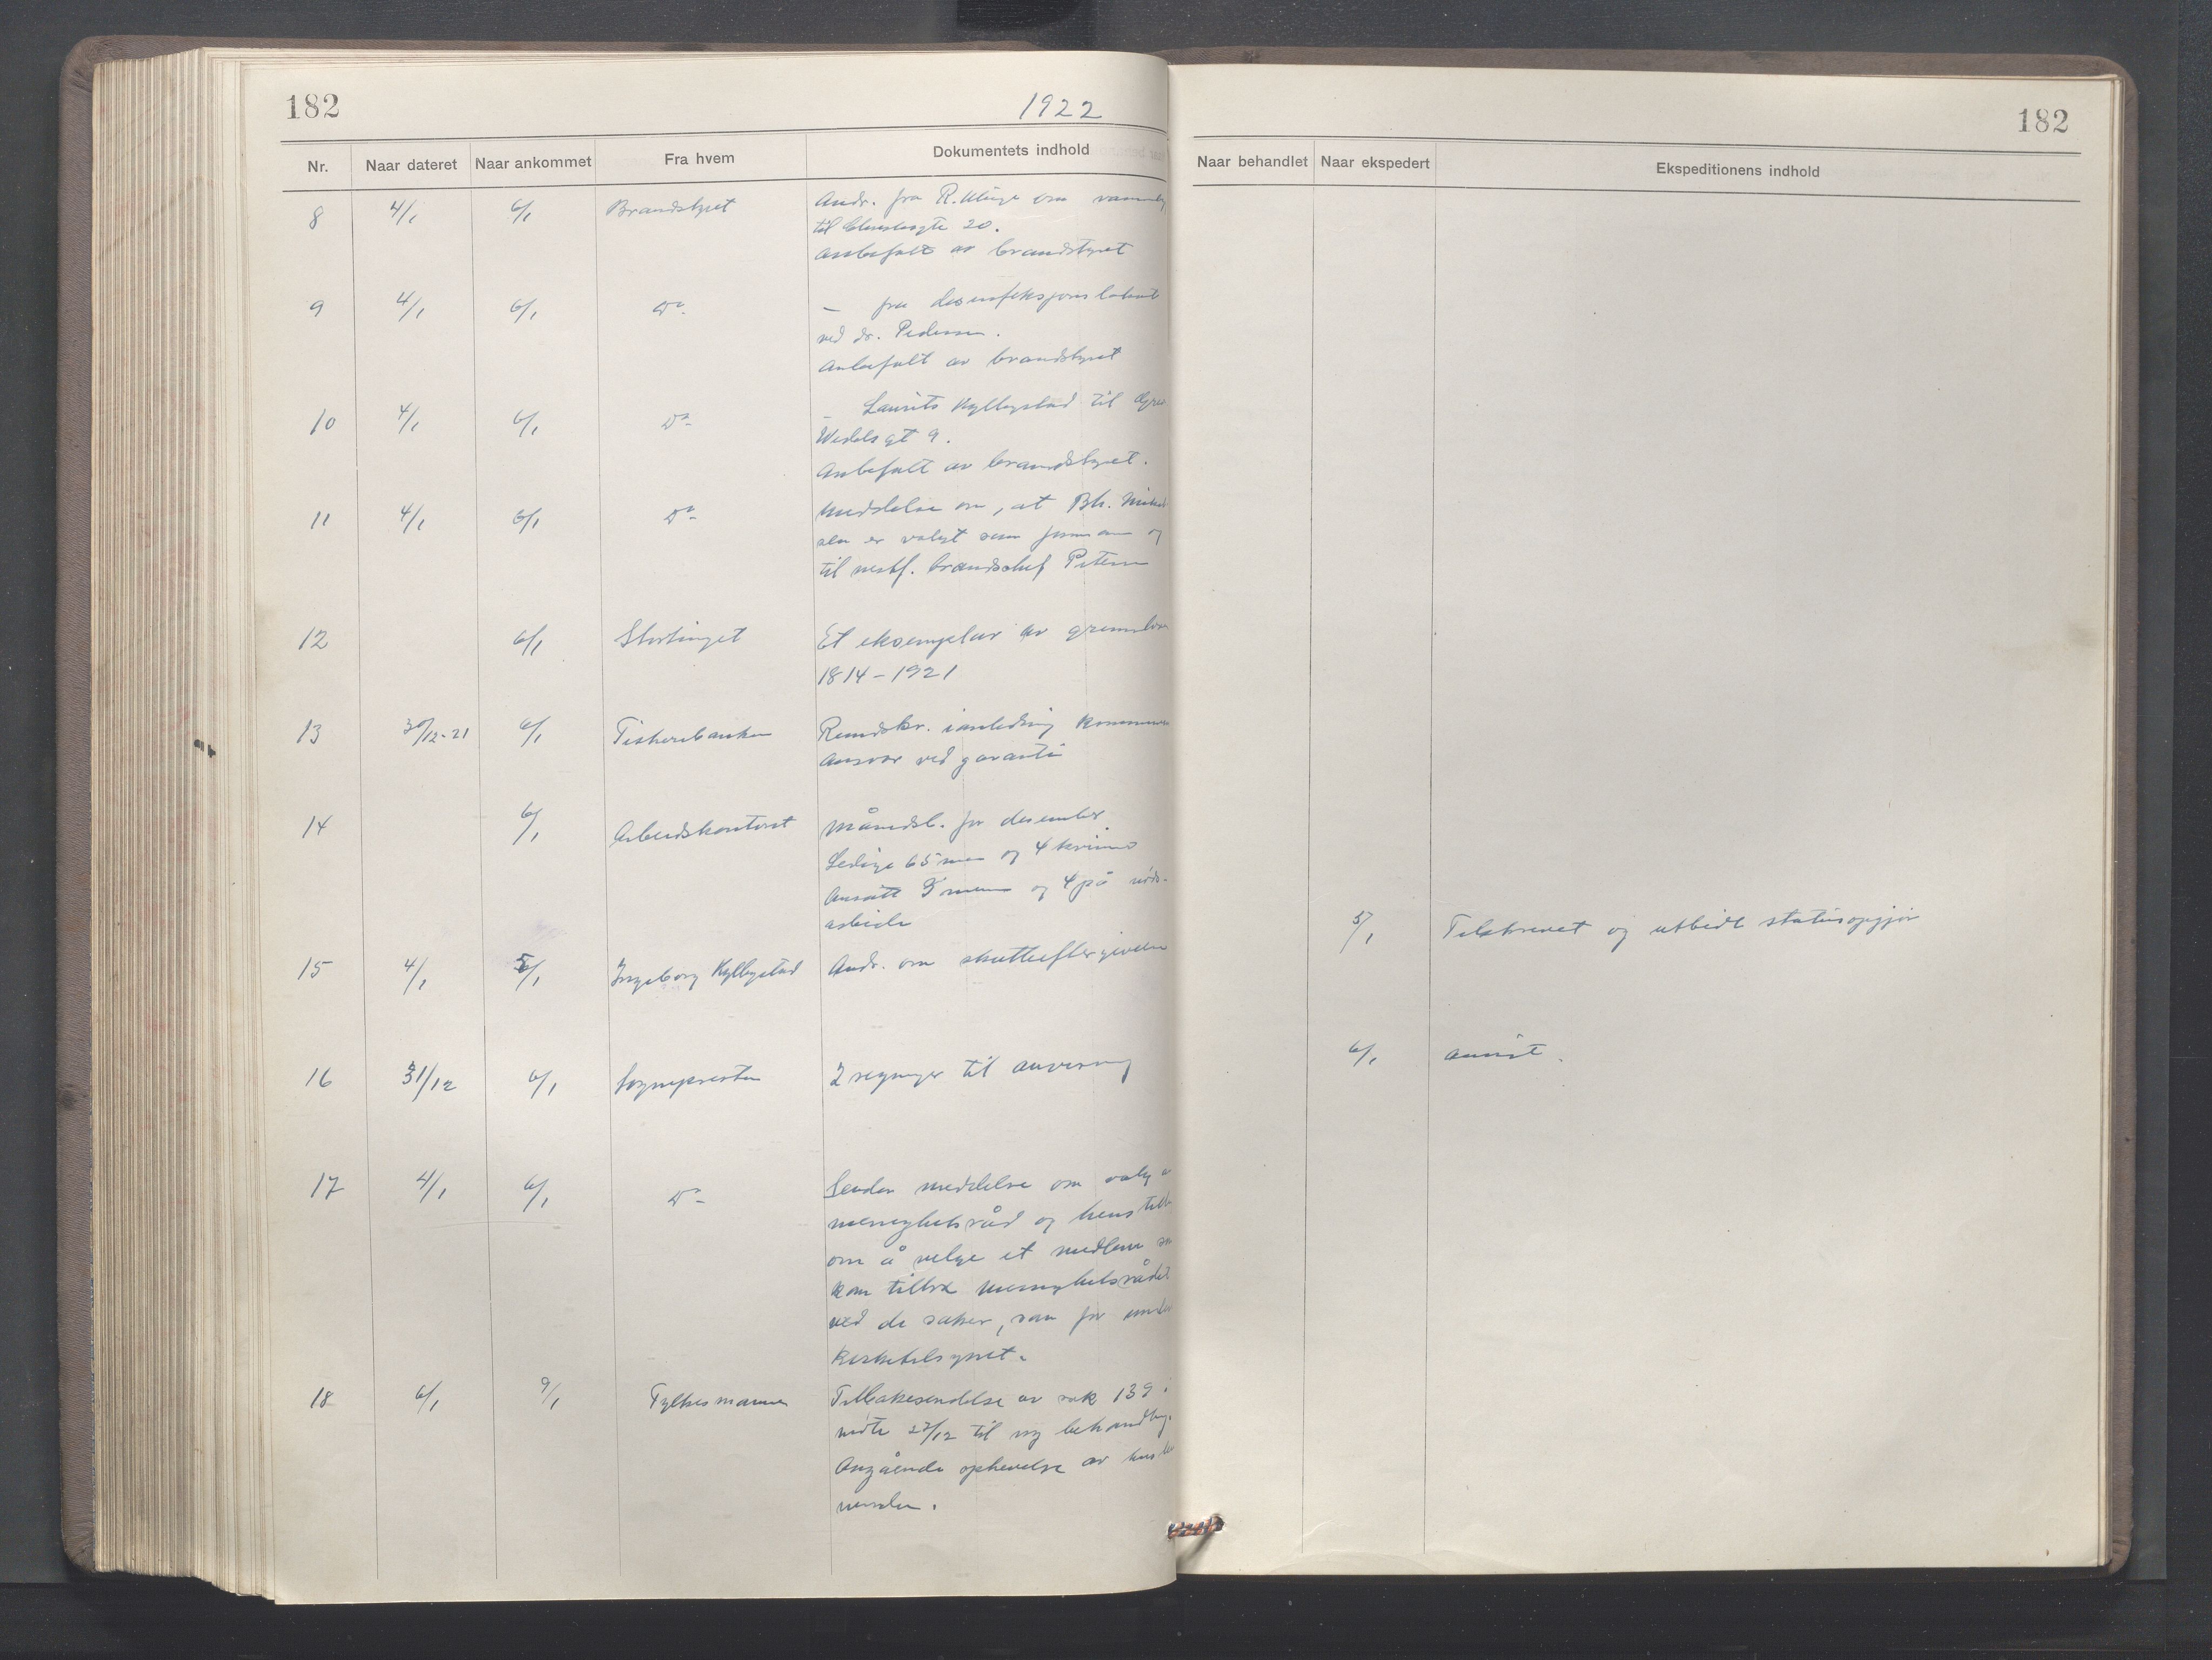 182
1922
182
Nr. Naar dateret Naar ankommet Fra hvem Dokumentets indhold
Naar behandlet Naar ekspedert Ekspeditionens indhold
8 4/1 6/1 Brandstyret Andr. fra R. om
til 20.
anbefalt av brandstyret
9 4/1 6/1 Do. — fra
ved dr. Pedersen.
Anbefalt av brandstyret
10 4/1 6/1 Do. — Laurits Kyllingstad til
Wedels gt 9.
Anbefalt av brandstyret.
11 4/1 6/1 Do. Meddelelse om, at Bh.
er valgt som formann og
til nestf. brandchef Petersen
12 6/1 Stortinget Et eksemplar av grunnloven
1814 – 1921
13 30/12-21 6/1 Fiskeribanken Rundskr. i anledning kommunens
ansvar ved garanti
14 6/1 Arbeidskontoret Månedsb. for desember
Ledige 65 menn og 4 kvinner
Ansatt menn og 4 på nøds-
arbeide
15 4/1 5/1 Ingeborg Kyllingstad Andr. om skatteeftergivelse
5/1 Tilskrevet og utbedt statusopgjør
16 31/12 6/1 Sognepresten 2 regninger til anvisning
6/1 anvist.
17 4/1 6/1 Do. Sender meddelelse om valg av
menighetsråd og henstiller
om å velge et medlem som
kan tiltre menighetsrådet
ved de saker, som før
kirketilsynet.
18 6/1 9/1 Fylkesmannen Tilbakesendelse av sak 139 i
møte 27/12 til ny behandling.
Angående ophevelse av
nemden.